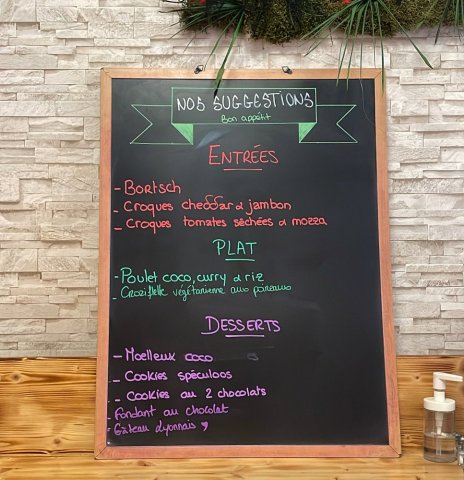 NOS SUGGESTIONS
Bon appétit
ENTRÉES
- Bortsch
- Croques cheddar & jambon
- Croques tomates séchées & mozza
PLAT
- Poulet coco, curry & riz
- Croziflette végétarienne aux poireaux
DESSERTS
- Moelleux coco
- Cookies spéculoos
- Cookies au 2 chocolats
- Fondant au chocolat
- Gâteau Lyonnais